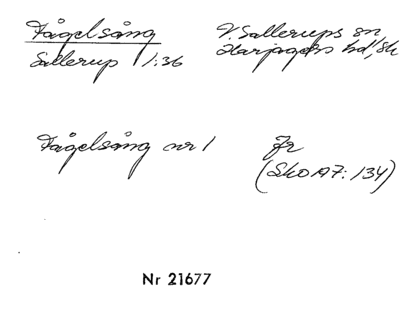 Fågelsång V. Sallerups sn,
Sallerup 1:36 Harjagers hd, Sk
Fågelsång nr 1 Jr
(SkO A7: 134)
Nr 21677